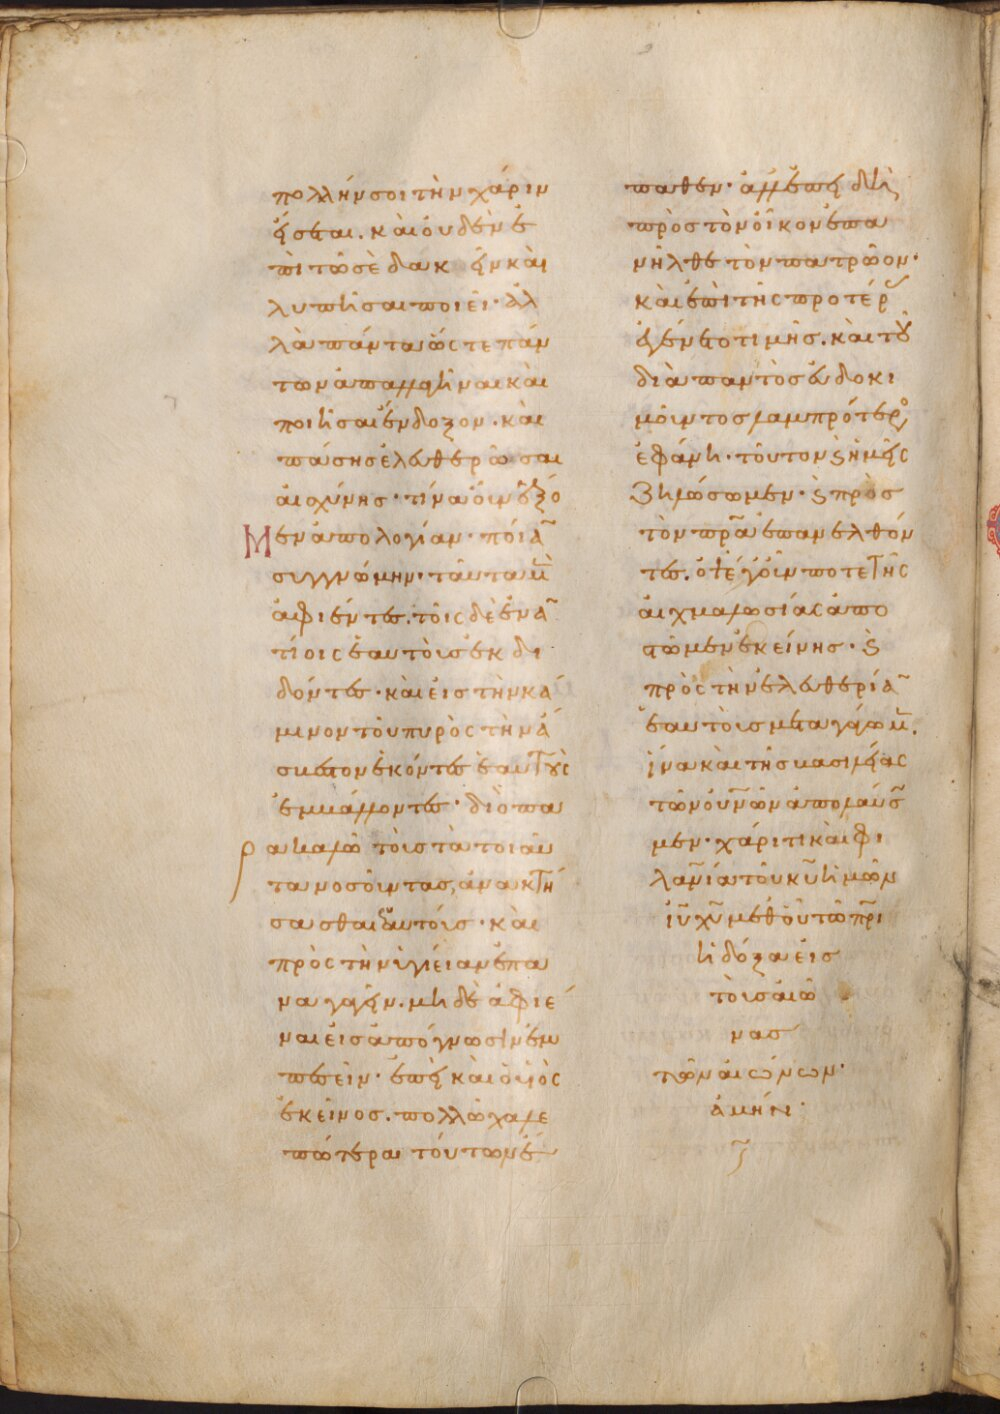 πολλήν σοι τὴν χάριν
ἔσεται. καὶ οὐδὲν ἐ
πὶ τῶ σὲ δακ εῖν καὶ
λυπῆσαι ποιεῖ· ἀλ
λὰ πάντα ὥστε πάν
των ἀπαλλαγῆναι καὶ
ποιῆσαι ἔνδοξον. καὶ
πάσης ἐλευθερῶσαι
αἰσχύνης· τίνα οὖν ἕξο
μεν ἀπολογίαν· ποία̅
συγγνώμην· ταῦτα μ̅
ἀφιέντες. τοῖς δὲ ἐνα̅
τίοις ἑαυτοὺς ἐκ δι
δόντες· καὶ εἰς τὴν κά
μινον τοῦ πυρὸς τὴν ἄ
σβεστον ἑκόντες ἑαυτοὺς
ἐμβάλλοντες· διὸ πα
ρακαλῶ τοὺς τὰ τοιαῦ
τα νοσοῦντας, ἀνακτή
σασθαι ἑαυτούς· καὶ
πρὸς τὴν ὑγίειαν ἐπα
ναγαγεῖν. μηδὲ ἀφιέ
ναι εἰς ἀπόγνωσιν ἐμ
πεσεῖν· ἐπεὶ καὶ ὁ υἱὸς
ἐκεῖνος. πολλῶ χαλε
πώτερα τούτων ἔ
παθεν· ἀλλ' ἐπειδὴ
πρὸς τὸν οἶκον ἐπα
νῆλθε τὸν πατρῶον·
καὶ ἐπὶ τῆς προτέρ
ἐγένετο τιμῆς. καὶ τοῦ
διὰ παντὸς εὐδοκι
μοῦντος λαμπρότερο
ἐφάνη· τοῦτον ϗ ἡμεῖς
ζηλώσωμεν· ϗ πρὸς
τὸν πρ̅α ἐπανελθόν
τες. ὀψέ γοῦν ποτε τῆς
αἰχμαλωσίας ἀπο
στῶμεν ἐκείνης· ϗ
πρὸς τὴν ἐλευθερία̅
ἑαυτοὺς μεταγάγωμ̅.
ἵνα καὶ τῆς βασιλείας
τῶν οὐ̅νῶν ἀπολαύσ
μεν· χάριτι καὶ φι
λα̅νία τοῦ κ̅υ ἡμῶν
ἰ̅υ χ̅υ μεθ' οὗ τῶ π̅ρι
ἡ δόξα εἰς
τοὺς αἰῶ
νας
τῶν αἰώνων·
ἀμήν·